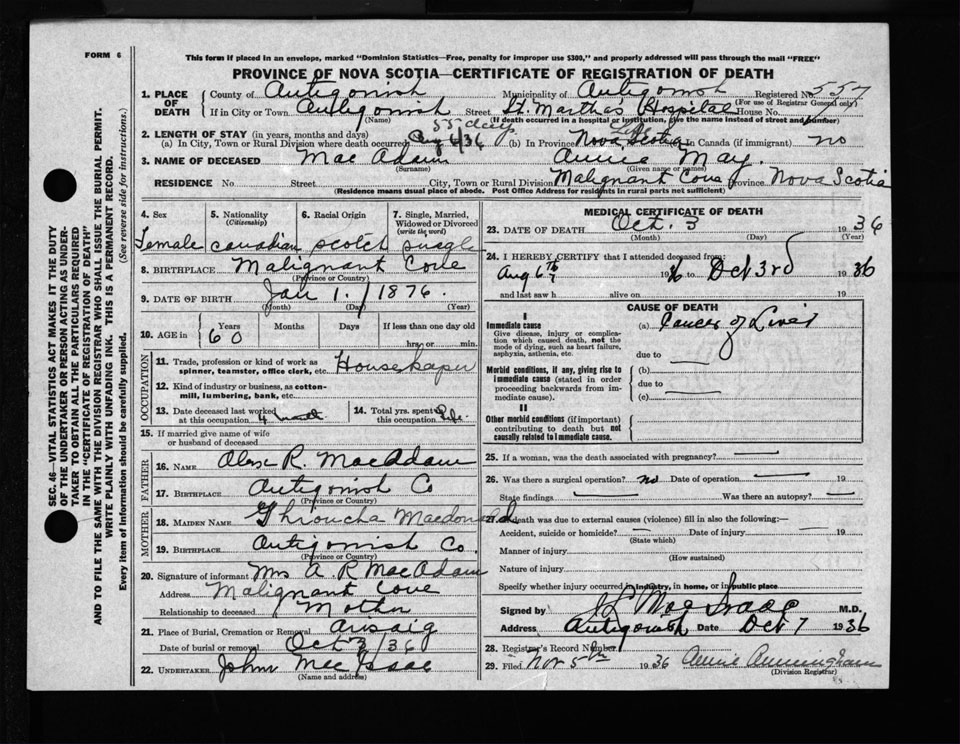 FORM 6
This form if placed in an envelope, marked "Dominion Statistics—Free, penalty for improper use $300," and properly addressed will pass through the mail "FREE"
PROVINCE OF NOVA SCOTIA—CERTIFICATE OF REGISTRATION OF DEATH
1. PLACE OF DEATH County of Antigonish Municipality of Antigonish Registered No 557
If in City or Town Antigonish Street St. Martha's Hospital House No. (For use of Registrar General only)
(Name) (If death occurred in a hospital or institution, give the name instead of street and number)
2. LENGTH OF STAY (in years, months and days) 55 days Life
(a) In City, Town or Rural Division where death occurred Aug 6/36 (b) In Province Nova Scotia In Canada (if immigrant) no
3. NAME OF DECEASED Mac Adam Annie May.
(Surname) (Given name or names)
RESIDENCE No. Street City, Town or Rural Division Malignant Cove Province Nova Scotia
(Residence means usual place of abode. Post Office Address for residents in rural parts not sufficient)
SEC. 46—VITAL STATISTICS ACT MAKES IT THE DUTY
OF THE UNDERTAKER OR PERSON ACTING AS UNDER-
TAKER TO OBTAIN ALL THE PARTICULARS REQUIRED
IN THE "CERTIFICATE OF REGISTRATION OF DEATH"
AND TO FILE THE SAME WITH THE DIVISION REGISTRAR WHO SHALL ISSUE THE BURIAL PERMIT.
WRITE PLAINLY WITH UNFADING INK. THIS IS A PERMANENT RECORD.
Every item of information should be carefully supplied. (See reverse side for instructions.)
4. Sex 5. Nationality (Citizenship) 6. Racial Origin 7. Single, Married, Widowed or Divorced (write the word)
Female Canadian Scotch Single
8. BIRTHPLACE Malignant Cove
(Province or Country)
9. DATE OF BIRTH Jan 1. 1876.
(Month) (Day) (Year)
10. AGE in Years Months Days If less than one day old
60 hrs. or min.
OCCUPATION
11. Trade, profession or kind of work as spinner, teamster, office clerk, etc. Housekeper
12. Kind of industry or business, as cotton-mill, lumbering, bank, etc.
13. Date deceased last worked at this occupation 4 14. Total yrs. spent at this occupation Life
15. If married give name of wife or husband of deceased
FATHER
16. NAME Alex R. MacAdam
17. BIRTHPLACE Antigonish Co
(Province or Country)
MOTHER
18. MAIDEN NAME Macdonald
19. BIRTHPLACE Antigonish Co.
(Province or Country)
20. Signature of informant Mrs A. R MacAdam
Address Malignant Cove
Relationship to deceased Mother
21. Place of Burial, Cremation or Removal Arisaig
Date of burial or removal Oct 3/36
22. UNDERTAKER John Mac Isaac
(Name and address)
MEDICAL CERTIFICATE OF DEATH
23. DATE OF DEATH Oct. 3 1936
(Month) (Day) (Year)
24. I HEREBY CERTIFY that I attended deceased from:
Aug 6th 1936 to Oct 3rd 1936
and last saw h alive on 19
CAUSE OF DEATH
I
Immediate cause (a) Cancer of Liver
Give disease, injury or complication which caused death, not the mode of dying, such as heart failure, asphyxia, asthenia, etc.
due to
Morbid conditions, if any, giving rise to immediate cause (stated in order proceeding backwards from immediate cause).
(b)
due to
(c)
II
Other morbid conditions (if important) contributing to death but not causally related to immediate cause.
25. If a woman, was the death associated with pregnancy?
26. Was there a surgical operation? no Date of operation 19
State findings Was there an autopsy?
27. If death was due to external causes (violence) fill in also the following:—
Accident, suicide or homicide? Date of injury 19
(State which)
Manner of injury
(How sustained)
Nature of injury
Specify whether injury occurred in industry, in home, or in public place
Signed by MacIsaac M.D.
Address Antigonish Date Oct 7 1936
28. Registrar's Record Number
29. Filed Nov 5th 1936 Annie Cunningham
(Division Registrar)